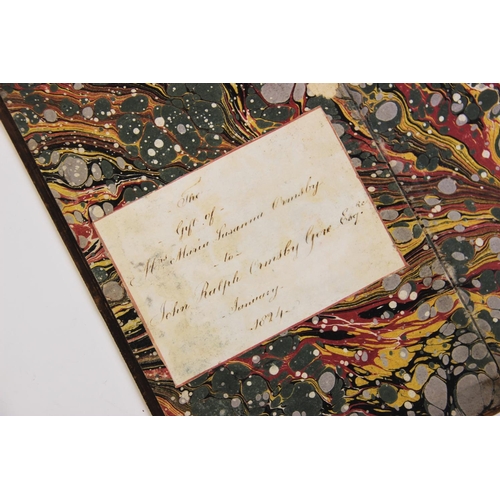 The
Gift of
Mrs. Maria Susanna Ormsby
to
John Ralph Ormsby Gore Esqre.
January
1874.